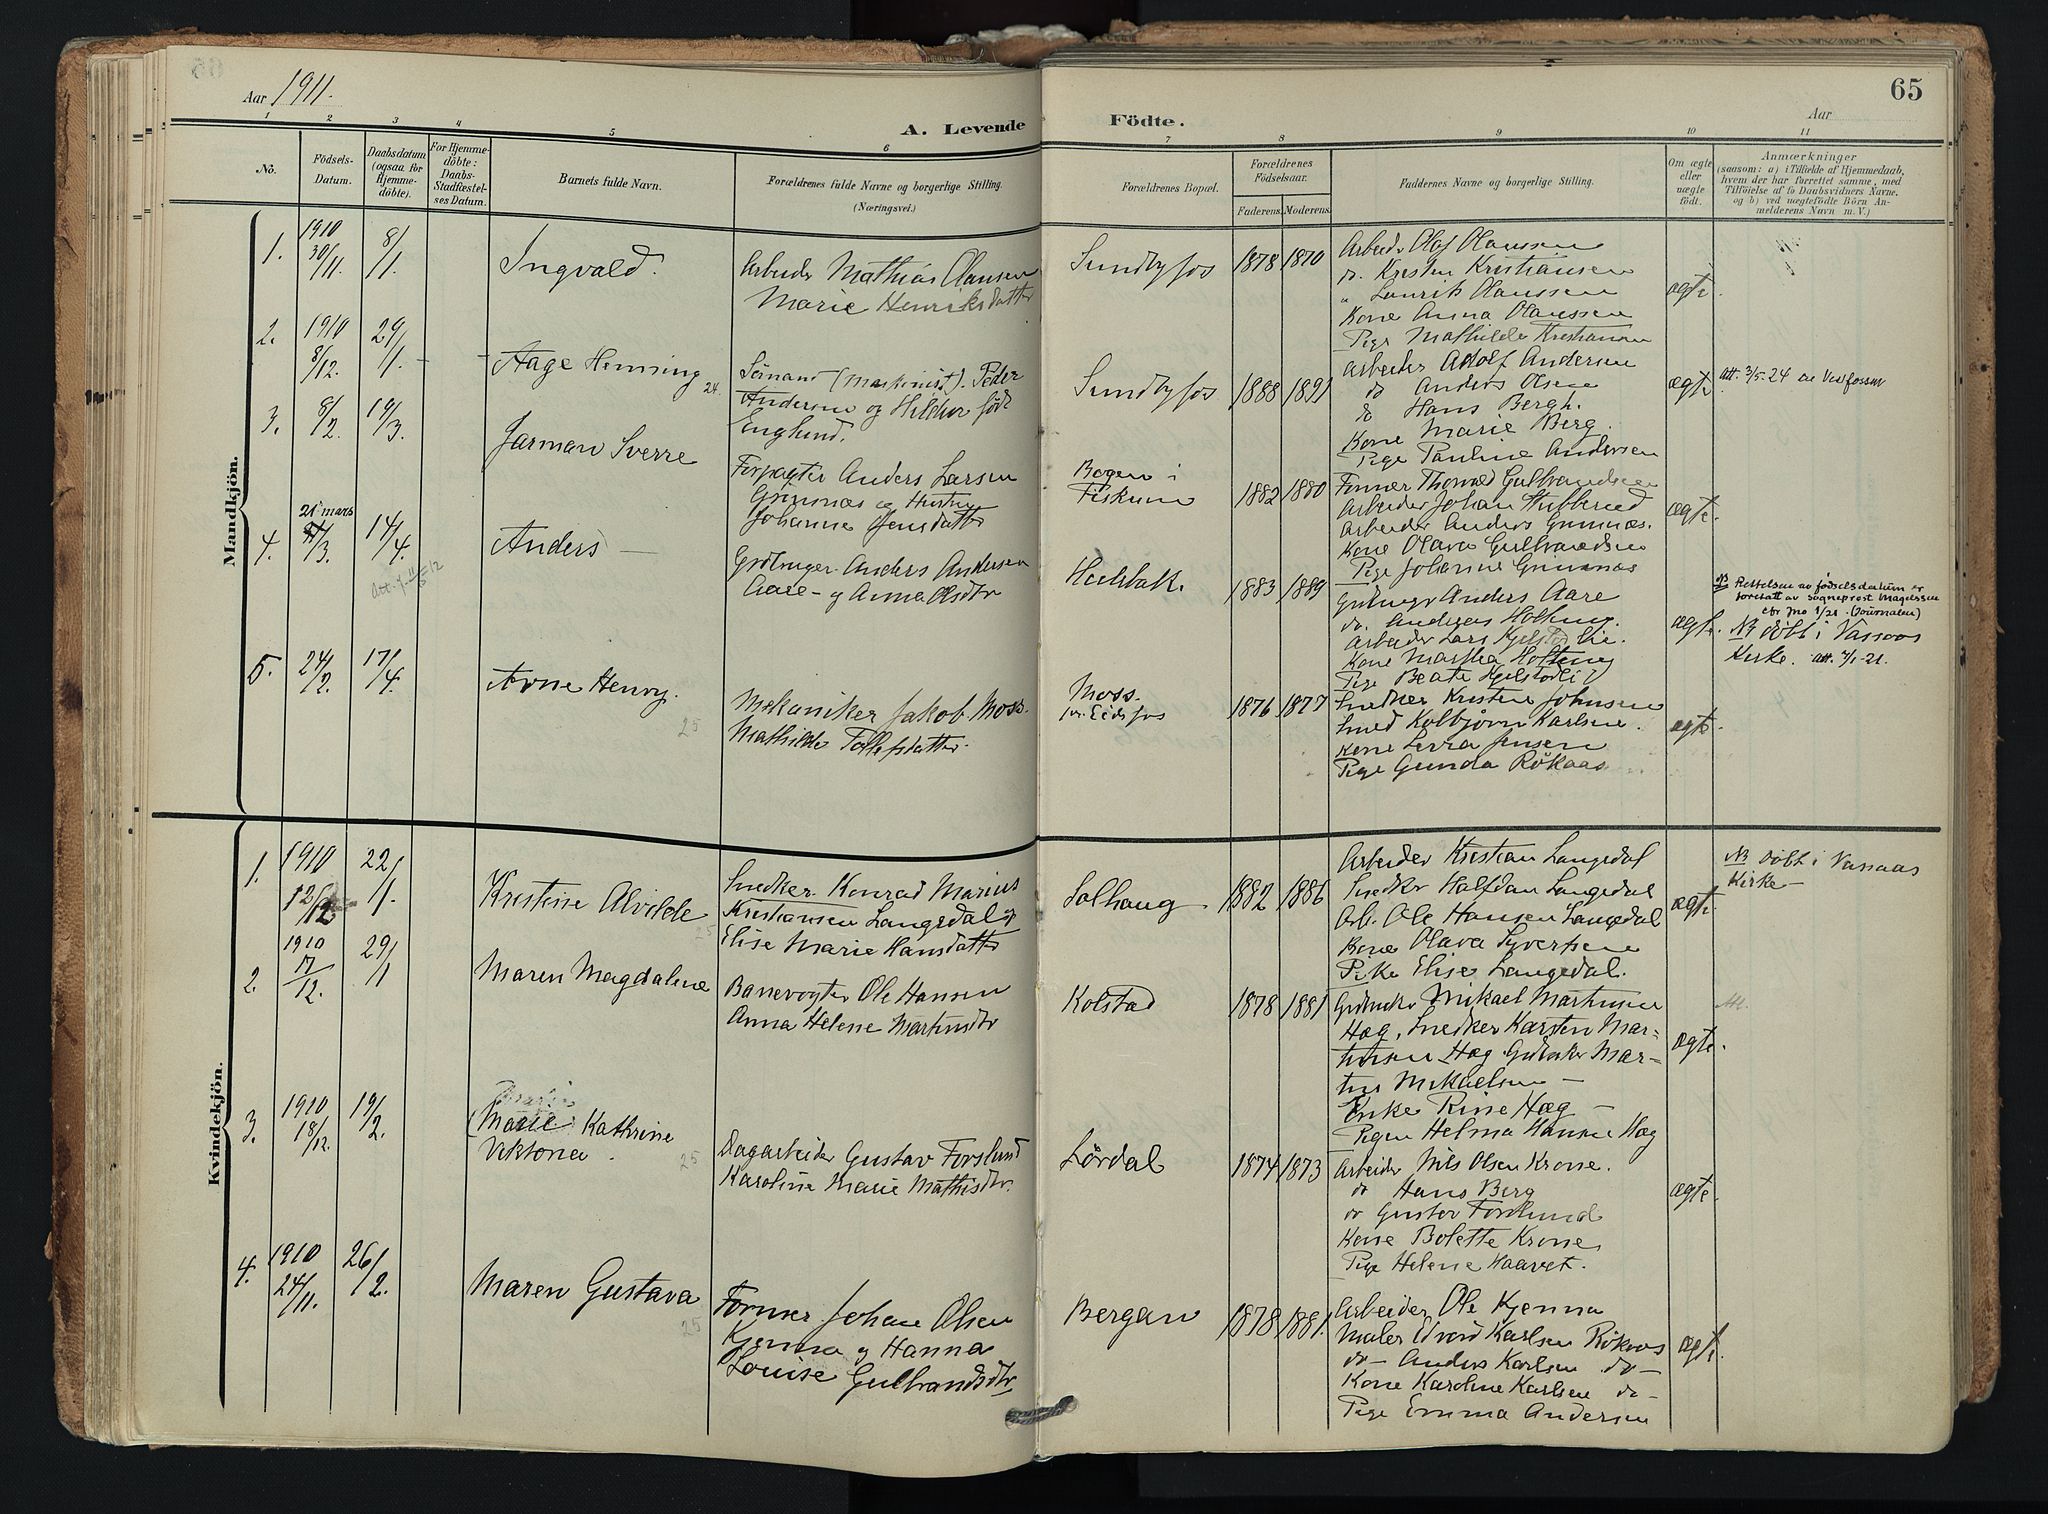 65
Aar 1911.
Aar
A. Levende Födte.
1 2 3 4 5 6 7 8 9 10 11
No.
Födsels-Datum.
Daabsdatum (ogsaa for Hjemme-döbte).
For Hjemme-döbte: Daabs-Stadfæstel-ses Datum.
Barnets fulde Navn.
Forældrenes fulde Navne og borgerlige Stilling.
(Næringsvei.)
Forældrenes Bopæl.
Forældrenes Födselsaar.
Faderens. Moderens.
Faddernes Navne og borgerlige Stilling.
Om ægte eller uægte födt.
Anmærkninger
(saasom: a) i Tilfælde af Hjemmedaab,
hvem der har forrettet samme, med
Tilföielse af to Daabsvidners Navne.
og b) ved uægtefödte Börn An-
melderens Navn m. V.)
Mandkjön.
1. 1910 30/11. 8/1 Ingvald.
Arbeider Mathias Olausen
Marie Henriksdatter
Sundbyfos 1878 1870
Arbeider Olaf Olaussen
do. Kresten Kristiansen
" Laurits Olaussen
Kone Anna Olaussen
Pige Mathilde Kristiansen
ægte.
2. 1910 8/12. 29/1. - - Aage Henning 24.
Sömand (Maskinist). Peder
Andersen og Hildur född
Englund.
Sundbyfos 1888 1891
Arbeider Adolf Andersen
do Anders Olsen
do Hans Bergh.
Kone Marie Berg.
Pige Pauline Andersen
ægte
Att. 3/5.24 av Vestfossen
3. 8/2. 19/3. Jarman Sverre
Forpagter Anders Larsen
Grimnæs og Hustru
Johanne Jensdatter
Bogen i
Fiskum 1882 1880
Former Thorvald Gulbrandsen
Arbeider Johan Stubberud
Arbeider Anders Grimnæs.
Kone Olava Gulbrandsen
Pige Johanne Grimnæs
ægte.
4. 21 mars /3. 14/4. Anders —
Att. 11/5 12
Grdbruger Anders Andersen
Aare - og Anna Olsdtr
1883 1889
Grdbruger Anders Aare
do. Andreas Holting.
Arbeider Lars
Kone Martha Holting
Pige Beate
ægte.
NB Rettelsen av fødselsdatum er
foretatt av sogneprost Magelssen
cfr Jno 1/21. (Journalen)
NB döbt i Vassaas
Kirke. att. 7/1-21.
5. 24/2. 17/4. Arne Henry. 25
Mekaniker Jakob Moss.
Mathilde Tollefsdatter.
Moss.
for. Eidsfos 1876 1877
Snedker Kristen Johnsen
Smed Kolbjørn Karlsen.
Kone Jensen
Pige Gunda Rökaas
ægte.
Kvindekjön.
1. 1910 12/12 22/1. Kristine Alvilde 25
Snedker Konrad Marius
Kristiansen Langedal og
Elise Marie Hansdatter
Solhaug 1882 1886
Arbeider Kristian Langedal
Snedker Halfdan Langedal
Arb. Ole Hansen Langedal
Kone Olava Syversen
Pike Elise Langedal.
ægte.
NB döbt i Vassaas
Kirke —
2. 1910 17/12. 29/1 Maren Magdalene
Banevogter Ole Hansen
Anna Helene Martinsdtr
Kolstad 1878 1881
Grdbruker Mikael Martinsen
Hæg, Snedker Karsten Mar-
tinsen Hæg Grdbruker Mar-
tin Mikaelsen —
Enke Rine Hæg —
Pigen Helma Hansen Hæg
ægte.
Att.
3. 1910 18/12. 19/2. (Marie Kathrine
Viktoria. 25
Dagarbeider Gustav Forslund
Karoline Marie Mathisdtr.
Lördal 1874 1873
Arbeider Nils Olsen Krone.
do Hans Berg
do Gustav Forslund
Kone Bolette Krone
Pige Helene Haavet.
ægte.
4. 1910 24/11. 26/2. Maren Gustava 25
Former Johan Olsen
Kjenna og Hanna
Louise Gulbrandsdtr
Bergan 1878 1881.
Arbeider Ole Kjenna
Maler Edvard Karlsen Rökaas
do - Anders Karlsen do -
Kone Karoline Karlsen do -
Pige Emma Andersen
ægte.